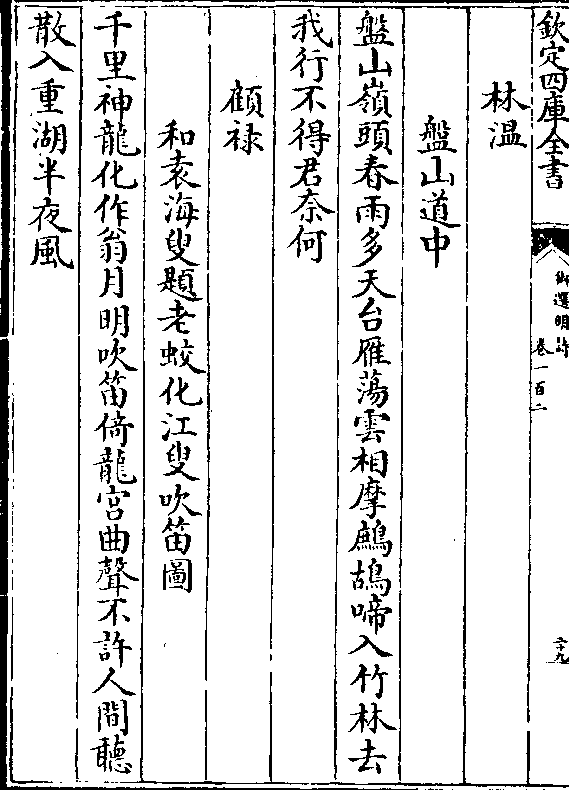 欽定四庫全書
御選明詩
卷一百二
二十九
林溫
盤山道中
盤山嶺頭春雨多天台雁蕩雲相摩鷓鴣啼入竹林去
我行不得君奈何
顧祿
和袁海叟題老蛟化江叟吹笛圖
千里神龍化作翁月明吹笛倚龍宮曲聲不許人間聽
散入重湖半夜風